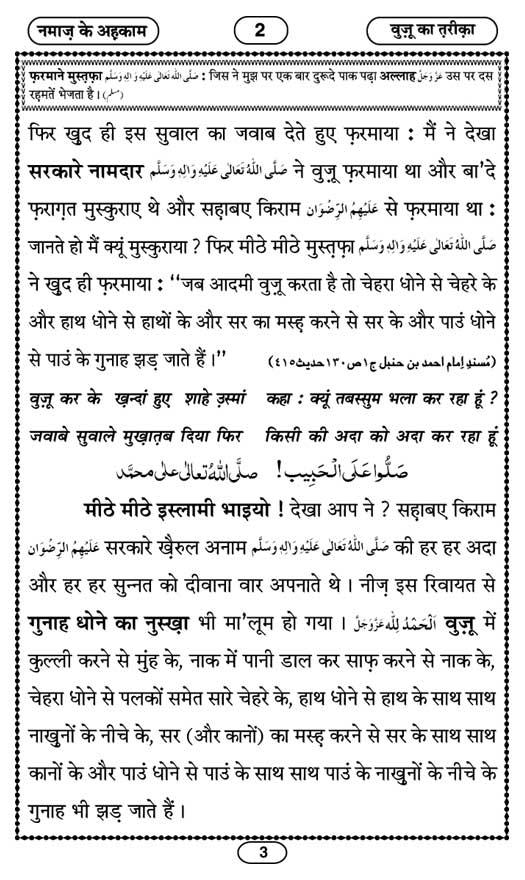 नमाज़ के अह़काम
2
वुज़ू का त़रीक़ा
फ़रमाने मुस्त़फ़ा صَلَّى اللّٰهُ تَعَالٰى عَلَيْهِ وَاٰلِهٖ وَسَلَّم : जिस ने मुझ पर एक बार दुरूदे पाक पढ़ा अल्लाह عَزَّوَجَلَّ उस पर दस
रह़मतें भेजता है। (مسلم)
फिर खु़द ही इस सुवाल का जवाब देते हुए फ़रमाया : मैं ने देखा
सरकारे नामदार صَلَّى اللّٰهُ تَعَالٰى عَلَيْهِ وَاٰلِهٖ وَسَلَّم ने वुज़ू फ़रमाया था और बा’दे
फ़राग़त मुस्कुराए थे और सह़ाबए किराम عَلَيْهِمُ الرِّضْوَان से फ़रमाया था :
जानते हो मैं क्यूं मुस्कुराया ? फिर मीठे मीठे मुस्त़फ़ा صَلَّى اللّٰهُ تَعَالٰى عَلَيْهِ وَاٰلِهٖ وَسَلَّم
ने खु़द ही फ़रमाया : “जब आदमी वुज़ू करता है तो चेहरा धोने से चेहरे के
और हाथ धोने से हाथों के और सर का मस्ह़ करने से सर के और पाउं धोने
से पाउं के गुनाह झड़ जाते हैं।” (مُسندِ اِمام احمد بن حنبل ج١ص١٣٠حديث٤١٥)
वुज़ू कर के ख़न्दां हुए शाहे उ़स्मां कहा : क्यूं तबस्सुम भला कर रहा हूं ?
जवाबे सुवाले मुख़ात़ब दिया फिर किसी की अदा को अदा कर रहा हूं
صَلُّوا عَلَى الْحَبِيب! صلَّى اللّٰهُ تعالٰى على محمَّد
मीठे मीठे इस्लामी भाइयो ! देखा आप ने ? सह़ाबए किराम
عَلَيْهِمُ الرِّضْوَان सरकारे खै़रुल अनाम صَلَّى اللّٰهُ تَعَالٰى عَلَيْهِ وَاٰلِهٖ وَسَلَّم की हर हर अदा
और हर हर सुन्नत को दीवाना वार अपनाते थे। नीज़ इस रिवायत से
गुनाह धोने का नुस्ख़ा भी मा’लूम हो गया। اَلْحَمْدُ لِلّٰه عَزَّوَجَلَّ वुज़ू में
कुल्ली करने से मुंह के, नाक में पानी डाल कर साफ़ करने से नाक के,
चेहरा धोने से पलकों समेत सारे चेहरे के, हाथ धोने से हाथ के साथ साथ
नाखु़नों के नीचे के, सर (और कानों) का मस्ह़ करने से सर के साथ साथ
कानों के और पाउं धोने से पाउं के साथ साथ पाउं के नाखु़नों के नीचे के
गुनाह भी झड़ जाते हैं।
3